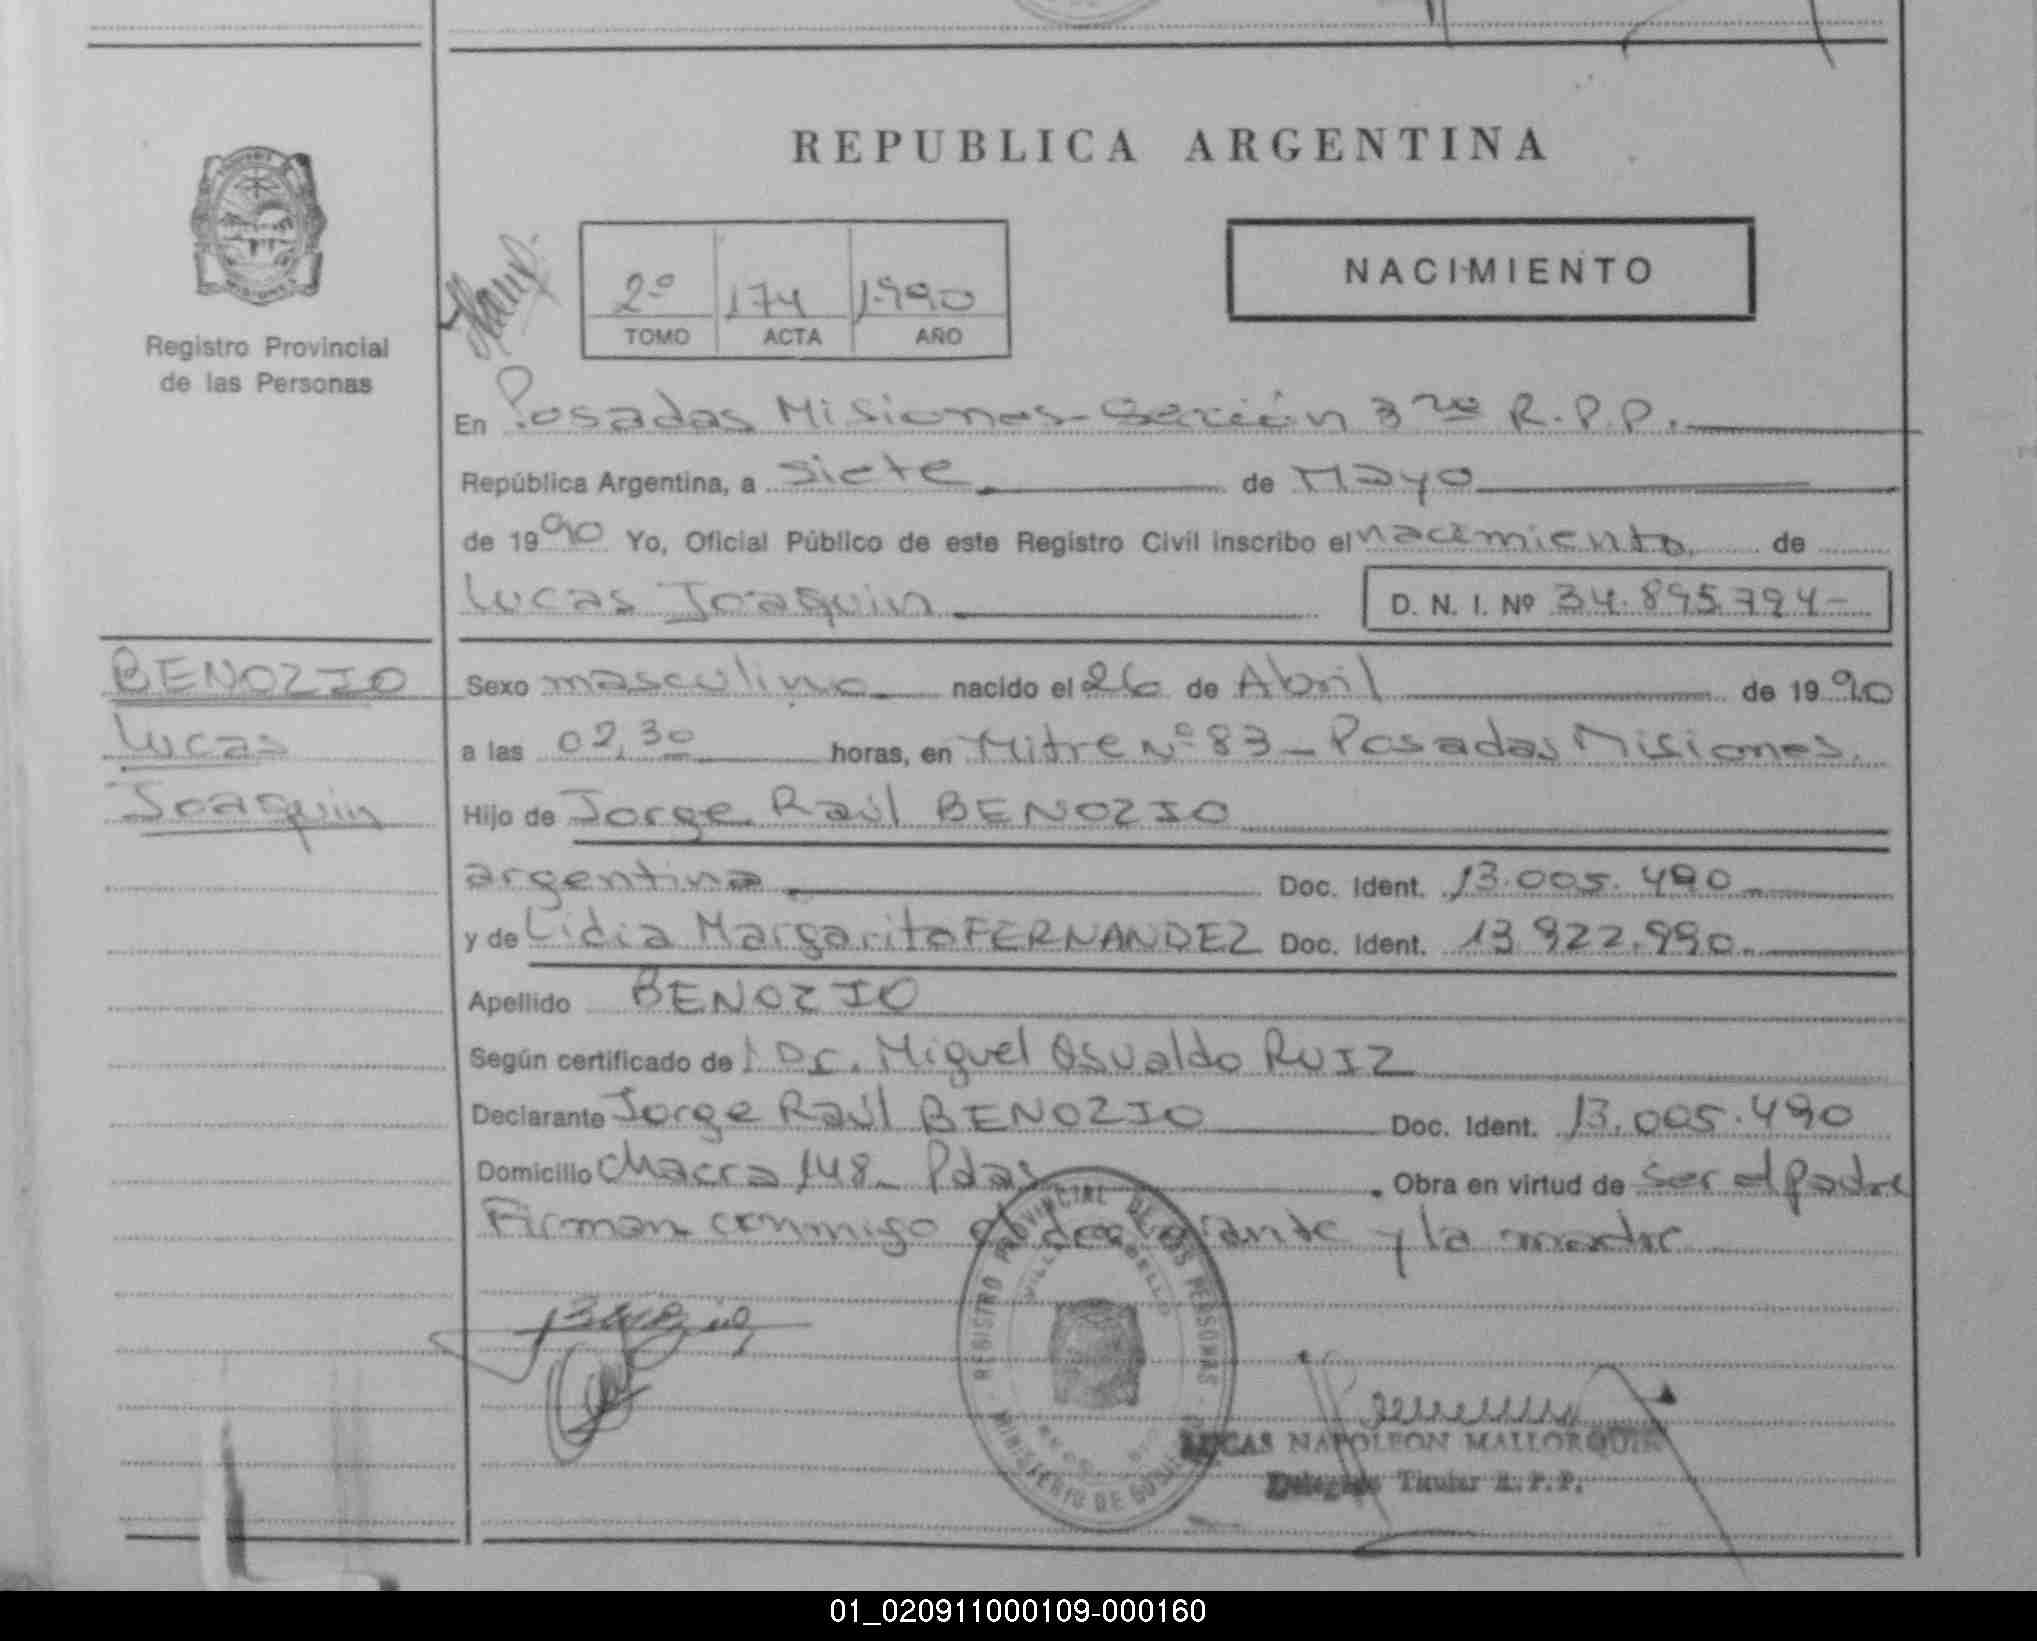 REPUBLICA ARGENTINA
NACIMIENTO
2º 174 1990
TOMO ACTA AÑO
Registro Provincial
de las Personas
En Posadas Misiones - Sección 3ra R.P.P.
República Argentina, a siete de Mayo
de 1990 Yo, Oficial Público de este Registro Civil inscribo el nacimiento de
Lucas Joaquin D. N. I. Nº 34.895.794-
BENOZIO
Lucas
Joaquin
Sexo masculino nacido el 26 de Abril de 1990
a las 02,30 horas, en Mitre Nº 83 - Posadas Misiones.
Hijo de Jorge Raúl BENOZIO
argentina Doc. Ident. 13.005.490
y de Lidia Margarita FERNANDEZ Doc. Ident. 13.922.990
Apellido BENOZIO
Según certificado del Dr. Miguel Osvaldo RUIZ
Declarante Jorge Raúl BENOZIO Doc. Ident. 13.005.490
Domicilio Chacra 148 - Pdas . Obra en virtud de ser el padre
Firman conmigo el declarante y la madre
REGISTRO PROVINCIAL DE LAS PERSONAS
MINISTERIO DE
LUCAS NAPOLEON MALLORQUIN
Delegado Titular R.P.P.
01_020911000109-000160